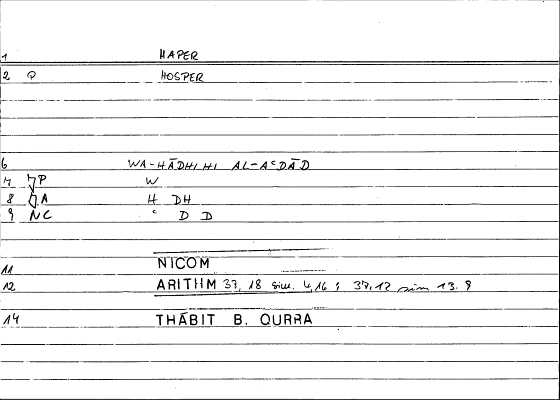 1 HAPER
2 P HOSPER
6 WA-HĀDHIHI AL-AʿDĀD
7 P W
8 A H DH
9 NC ʿ D D
11 NICOM
12 ARITHM 37, 18 sim. 4,16; 37.12 sim 13.9
14 THĀBIT B. QURRA